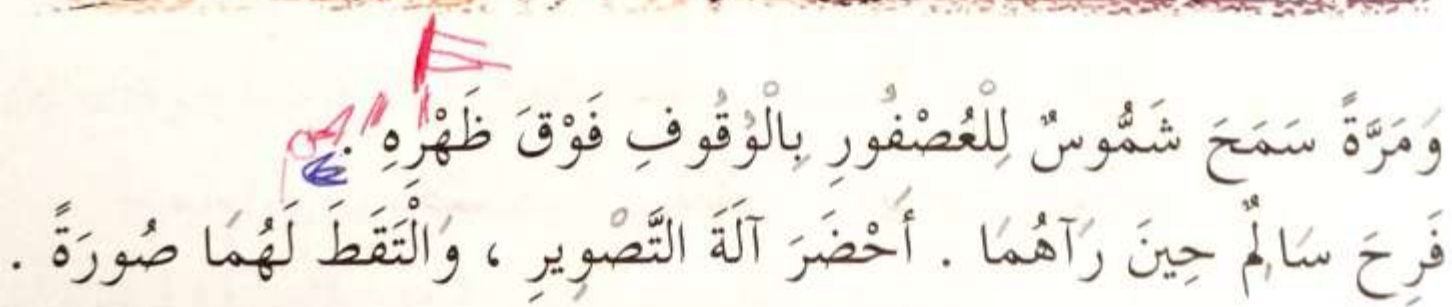 وَمَرَّةً سَمَحَ شَمُّوسٌ لِلْعُصْفُورِ بِالْوُقُوفِ فَوْقَ ظَهْرِهِ .
فَرِحَ سَالِمٌ حِينَ رَآهُمَا . أَحْضَرَ آلَةَ التَّصْوِيرِ ، وَالْتَقَطَ لَهُمَا صُورَةً .